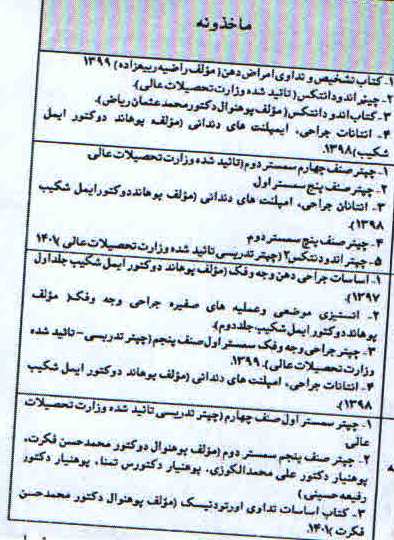 ماخذونه
۱- کتاب تشخیص و تداوی امراض دهن (مؤلف راضیه ربیعزاده) ۱۳۹۹
۲- چپتر اندودانتکس (تائید شده وزارت تحصیلات عالی).
۳- کتاب اندودانتکس (مؤلف پوهنوال دکتور محمد عثمان ریاض).
۴- انتانات جراحی، ایمپلنت های دندانی (مؤلف پوهاند دوکتور ایمل
شکیب) ۱۳۹۸.
۱- چپتر صنف چهارم سمستر دوم (تائید شده وزارت تحصیلات عالی
۲- چپتر صنف پنج سمستر اول
۳- انتانان جراحی، امپلنت های دندانی (مؤلف پوهاند دوکتور ایمل شکیب
۱۳۹۸).
۴- چپتر صنف پنج سمستر دوم
۵- چپتر اندودنتکس ۲ (چپتر تدریسی تائید شده وزارت تحصیلات عالی) ۱۴۰۱
۱- اساسات جراحی دهن وجه وفک (مؤلف پوهاند دوکتور ایمل شکیب جلد اول
۱۳۹۷).
۲- انستیزی موضعی وعملیه های صغیره جراحی وجه وفک( مؤلف
پوهاند دوکتور ایمل شکیب، جلد دوم).
۳- چپتر جراحی وجه وفک سمستر اول صنف پنجم (چپتر تدریسی- تائید شده
وزارت تحصیلات عالی) ۱۳۹۹.
۴- انتانات جراحی، امپلنت های دندانی (مؤلف پوهاند دوکتور ایمل شکیب
۱۳۹۸).
۱- چپتر سمستر اول صنف چهارم (چپتر تدریسی تائید شده وزارت تحصیلات
عالی
۲- چپتر صنف پنجم سمستر دوم (مؤلف پوهنوال دوکتور محمد حسن فکرت،
پوهنیار دکتور علی محمد الکوزی، پوهنیار دکتورس تمنا، پوهنیار دکتور
رفیعه حسینی )
۳- کتاب اساسات تداوی اورتودنیسک (مؤلف پوهنوال دکتور محمد حسن
فکرت )۱۴۰۱.